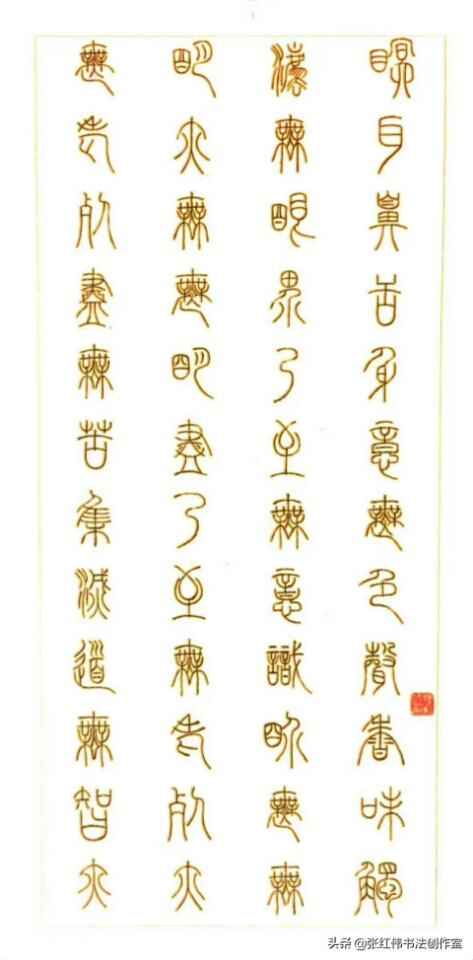 眼耳鼻舌身意無色聲香味觸
法無眼界乃至無意識界無無
明亦無無明盡乃至無老死亦
無老死盡無苦集滅道無智亦
头条@张红伟书法创作室